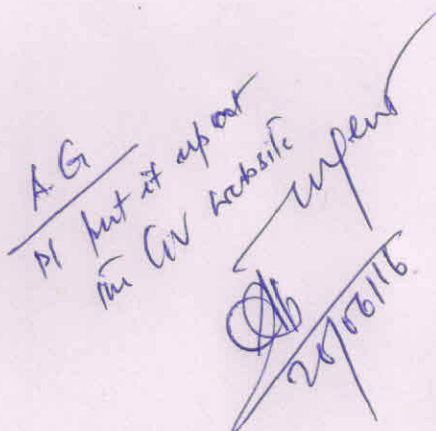 A.G
Pl put it up at
the GV website
urgent
20/06/16